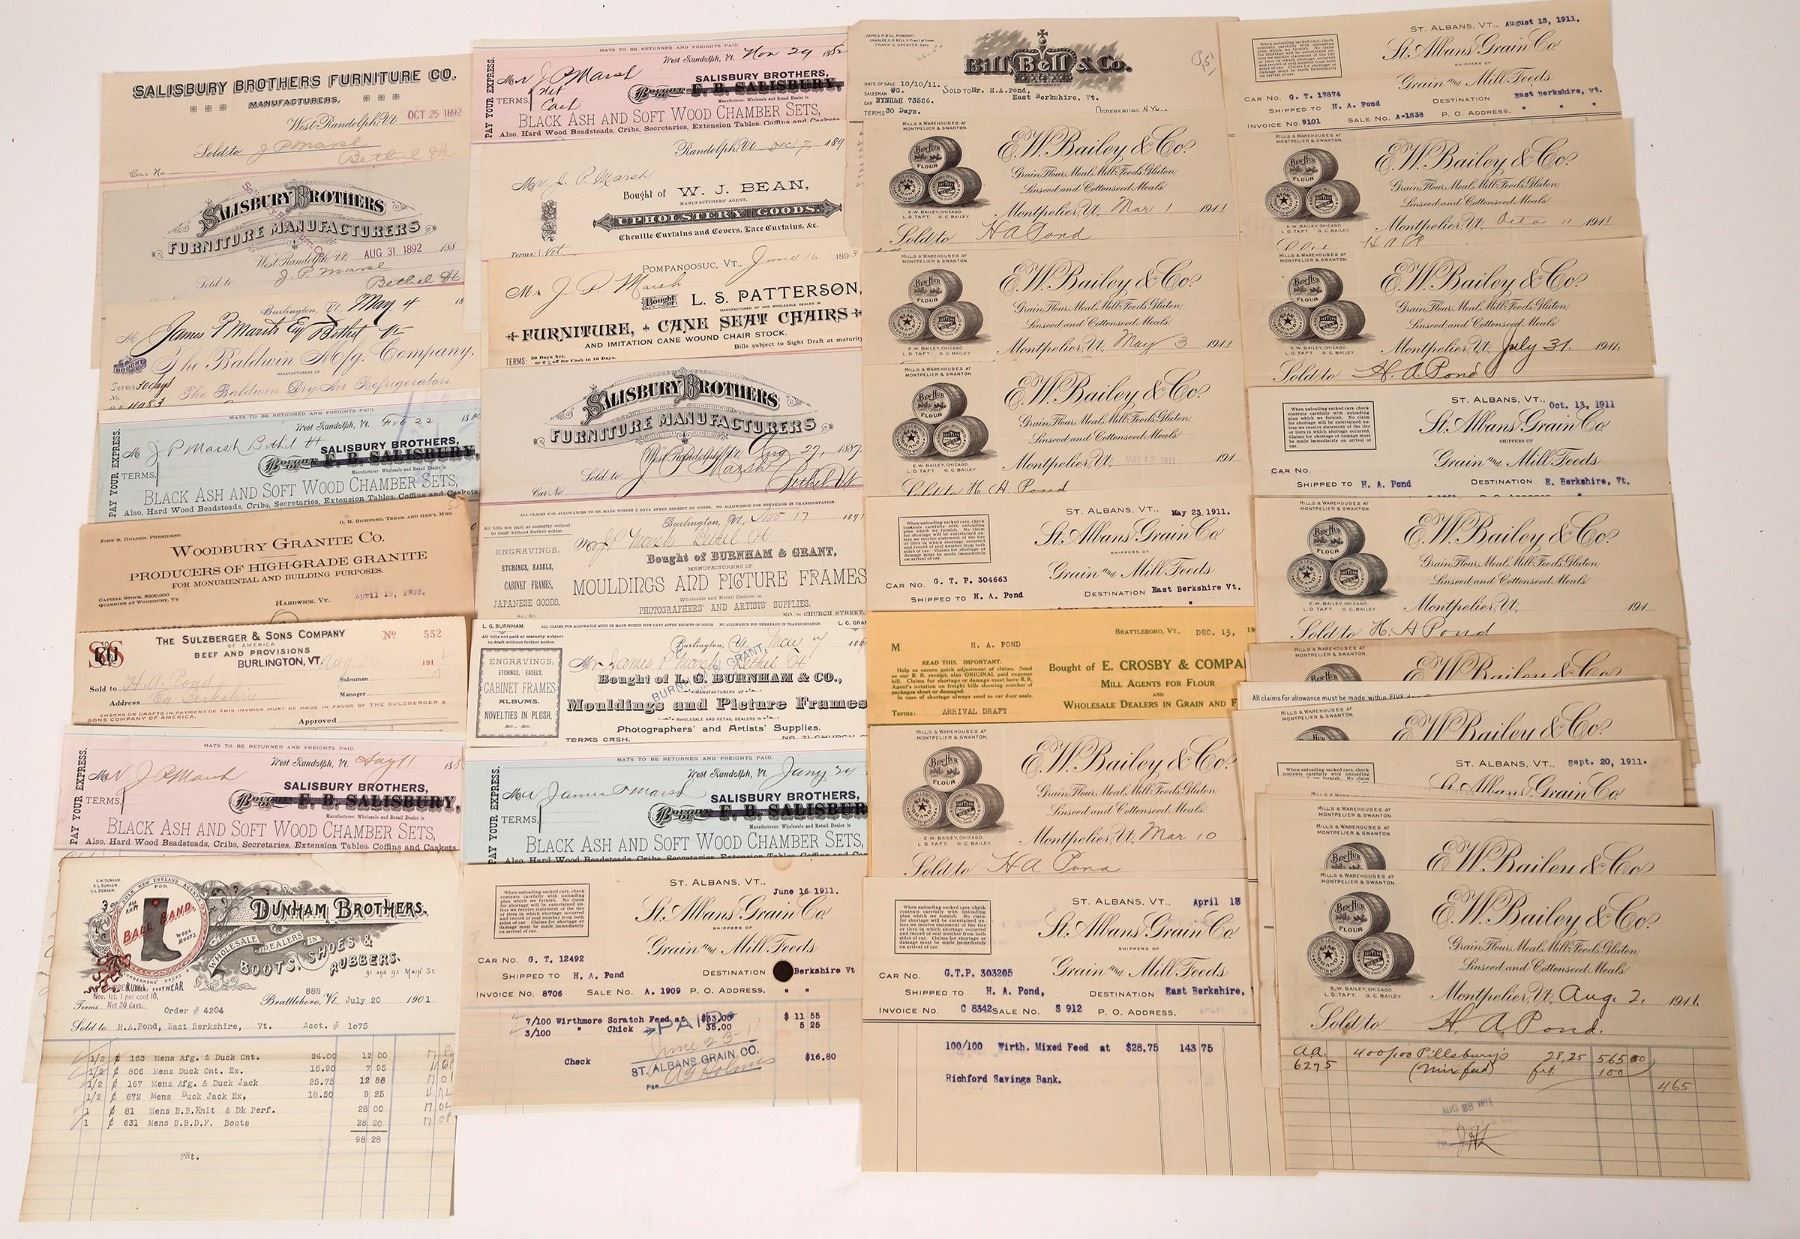 SALISBURY BROTHERS FURNITURE CO.
MANUFACTURERS,
West Randolph, Vt. OCT 25 1892
Sold to J P Marsh
Bethel Vt
Car No.
SALISBURY BROTHERS
FURNITURE MANUFACTURERS
West Randolph, Vt. AUG 31 1892 188
Sold to J. P. Marsh
Bethel Vt
Burlington, Vt. May 4
M James P Marsh Esq Bethel Vt
The Baldwin Mfg. Company,
MANUFACTURERS OF
Terms 30 days
The Baldwin Dry Air Refrigerators.
No. 4983
MATS TO BE RETURNED AND FREIGHTS PAID.
PAY YOUR EXPRESS.
West Randolph, Vt. Feb 22
M J P Marsh Bethel Vt
SALISBURY BROTHERS,
Bought of F. B. SALISBURY,
TERMS,
Manufacturer, Wholesale and Retail Dealer in
BLACK ASH AND SOFT WOOD CHAMBER SETS,
Also, Hard Wood Beadsteads, Cribs, Secretaries, Extension Tables, Coffins and Caskets
G. H. BICKFORD, TREAS. AND GEN'L MGR.
JOHN S. HOLDEN, PRESIDENT.
WOODBURY GRANITE CO.
PRODUCERS OF HIGH-GRADE GRANITE
FOR MONUMENTAL AND BUILDING PURPOSES.
CAPITAL STOCK, $200,000
QUARRIES AT WOODBURY, VT
HARDWICK, VT. April 10, 1902.
THE SULZBERGER & SONS COMPANY
OF AMERICA
No 552
BEEF AND PROVISIONS
BURLINGTON, VT. Aug 26 191
Sold to H. A. Pond
Salesman
Address Ea Berkshire
Manager
CHECKS OR DRAFTS IN PAYMENT OF THIS INVOICE MUST BE MADE IN FAVOR OF THE SULZBERGER &
SONS COMPANY OF AMERICA.
Approved
MATS TO BE RETURNED AND FREIGHTS PAID.
PAY YOUR EXPRESS.
West Randolph, Vt.
Mr J. P. Marsh
SALISBURY BROTHERS,
TERMS,
Bought of F. B. SALISBURY,
Manufacturer, Wholesale and Retail Dealer in
BLACK ASH AND SOFT WOOD CHAMBER SETS,
Also, Hard Wood Beadsteads, Cribs, Secretaries, Extension Tables, Coffins and Caskets
L.W. DUNHAM.
G.L. DUNHAM.
BALL BAND.
DUNHAM BROTHERS.
WHOLESALE DEALERS IN
BOOTS, SHOES &
RUBBERS.
91 and 93 Main St.
888
Brattleboro, Vt., July 20 1901.
Terms
Nov. 1st. 1 per cent 10,
Net 30 days.
Order # 4204
Sold to H.A.Pond, East Berkshire, Vt. Acct. # 1075
1/2 ¢ 163 Mens Afg. & Duck Ont. 24.00 12 00
1/2 ¢ 806 Mens Duck Ont. Ex. 7 95
1/2 ¢ 167 Mens Afg. & Duck Jack 25.75 12 88
1/2 ¢ 672 Mens Duck Jack Ex, 18.50 9 25
1 ¢ 81 Mens B.B.Knit & Dk Perf. 28 00
1 ¢ 631 Mens B.B.D.F. Boots 28 20
98 28
FRt.
MATS TO BE RETURNED AND FREIGHTS PAID.
PAY YOUR EXPRESS.
West Randolph, Vt. Nov 29 188
Mr J. P. Marsh
SALISBURY BROTHERS,
Bought of F. B. SALISBURY,
TERMS, Net Cash
Manufacturer, Wholesale and Retail Dealer in
BLACK ASH AND SOFT WOOD CHAMBER SETS,
Also, Hard Wood Beadsteads, Cribs, Secretaries, Extension Tables, Coffins and Caskets
Randolph, Vt. Dec 7 189
Mr J. P. Marsh
Bought of W. J. BEAN,
MANUFACTURERS' AGENT,
UPHOLSTERY GOODS,
Chenille Curtains and Covers, Lace Curtains, &c.
Terms: Net
POMPANOOSUC, VT., June 16 189
Mr J. P. Marsh
Bought of L. S. PATTERSON,
MANUFACTURER OF AND WHOLESALE DEALER IN
FURNITURE, CANE SEAT CHAIRS
AND IMITATION CANE WOUND CHAIR STOCK.
TERMS: 30 Days Net,
Bills subject to Sight Draft at maturity
SALISBURY BROTHERS
FURNITURE MANUFACTURERS
West Randolph, Vt. Aug 27, 1889
Sold to J. P. Marsh
Car No Bethel Vt
ALL CLAIMS FOR ALLOWANCES TO BE MADE 5 DAYS AFTER RECEIPT OF GOODS. NO ALLOWANCE FOR BREAKAGE IN TRANSPORTATION.
All bills not paid at maturity subject
to draft without further notice.
Burlington, Vt., Nov 17 1891
ENGRAVINGS,
ETCHINGS, EASELS,
CABINET FRAMES,
JAPANESE GOODS,
M J P Marsh Bethel Vt
Bought of BURNHAM & GRANT,
MANUFACTURERS OF
MOULDINGS AND PICTURE FRAMES
Wholesale and Retail Dealers in
PHOTOGRAPHERS' AND ARTISTS' SUPPLIES.
CHURCH STREET.
L. G. BURNHAM.
ALL CLAIMS FOR ALLOWANCES TO BE MADE 5 DAYS AFTER RECEIPT OF GOODS NO ALLOWANCE FOR BREAKAGE IN TRANSPORTATION.
All bills not paid at maturity subject
to draft without further notice.
Burlington, Vt.
ENGRAVINGS,
ETCHINGS, EASELS,
CABINET FRAMES
ALBUMS.
NOVELTIES IN PLUSH.
TERMS CASH.
Mr James P Marsh Bethel Vt
Bought of L. G. BURNHAM & CO.,
MANUFACTURERS OF
Mouldings and Picture Frames
WHOLESALE AND RETAIL DEALERS IN
Photographers' and Artists' Supplies.
MATS TO BE RETURNED AND FREIGHTS PAID.
PAY YOUR EXPRESS.
West Randolph, Vt. Jany 24
Mr James P Marsh
SALISBURY BROTHERS,
TERMS,
Bought of F. B. SALISBURY
Manufacturer, Wholesale and Retail Dealer in
BLACK ASH AND SOFT WOOD CHAMBER SETS,
Also, Hard Wood Beadsteads, Cribs, Secretaries, Extension Tables, Coffins and Caskets
ST. ALBANS, VT., June 16 1911.
St. Albans Grain Co
SHIPPERS OF
Grain and Mill Feeds
CAR NO. G. T. 12492
SHIPPED TO H. A. Pond DESTINATION Berkshire Vt
INVOICE NO. 8706 SALE NO. A. 1909 P. O. ADDRESS, " "
7/100 Wirthmore Scratch Feed at $33.00 $ 11 55
3/100 " Chick " 35.00 5 25
PAID
Check $16.80
June 23-11
ST. ALBANS GRAIN CO.
PER
JAMES H. BILL, PRESIDENT.
FRANK G. SPENCER, SECY
Bill, Bell & Co.
DATE OF SALE 10/10/11.
SALESMAN WG.
SOLD TO Mr. H.A.Pond,
CAR NYNH&H 73526.
East Berkshire, Vt.
TERMS 30 Days.
OGDENSBURG N.Y.
MILLS & WAREHOUSES AT
MONTPELIER & SWANTON.
BEN HUR
FLOUR
E.W. Bailey & Co.
Grain, Flour, Meal, Mill-Feeds, Gluten,
Linseed and Cottonseed Meals
E.W. BAILEY, CHICAGO.
L. D. TAFT. G. C. BAILEY.
Montpelier, Vt., Mar 1 1911
Sold to H A Pond
MILLS & WAREHOUSES AT
MONTPELIER & SWANTON.
BEN HUR
FLOUR
E.W. Bailey & Co.
Grain, Flour, Meal, Mill-Feeds, Gluten,
Linseed and Cottonseed Meals
E.W. BAILEY, CHICAGO.
L. D. TAFT. G. C. BAILEY.
Montpelier, Vt. May 3 1911
MILLS & WAREHOUSES AT
MONTPELIER & SWANTON.
BEN HUR
FLOUR
E.W. Bailey & Co.
Grain, Flour, Meal, Mill-Feeds, Gluten,
Linseed and Cottonseed Meals
E.W. BAILEY, CHICAGO.
L. D. TAFT. G. C. BAILEY.
Montpelier, Vt. 191
Sold to H. A. Pond
ST. ALBANS, VT., May 23 1911.
St. Albans Grain Co
SHIPPERS OF
Grain and Mill Feeds
CAR NO. G. T. P. 304663
SHIPPED TO H. A. Pond DESTINATION East Berkshire Vt.
BRATTLEBORO, VT. DEC. 13, 19
M H. A. POND
READ THIS. IMPORTANT.
Help us secure quick adjustment of claims. Send
us R. R. expense bill, also ORIGINAL paid expense
bill. Claims for shortage or damage must have R. R.
Agent's notation on freight bills showing number of
packages short or damaged.
In case of shortage always send us car door seals.
Bought of E. CROSBY & COMPA
MILL AGENTS FOR FLOUR
AND
WHOLESALE DEALERS IN GRAIN AND F
Terms: ARRIVAL DRAFT
MILLS & WAREHOUSES AT
MONTPELIER & SWANTON.
BEN HUR
FLOUR
E.W. Bailey & Co.
Grain, Flour, Meal, Mill-Feeds, Gluten,
Linseed and Cottonseed Meals
E.W. BAILEY, CHICAGO.
L. D. TAFT. G. C. BAILEY.
Montpelier, Vt. Mar 10
Sold to H A Pond
ST. ALBANS, VT., April 18
St. Albans Grain Co
SHIPPERS OF
Grain and Mill Feeds
CAR NO. G.T.P. 303205
SHIPPED TO H. A. Pond, DESTINATION East Berkshire,
INVOICE NO. C 8342 SALE NO. S 912 P. O. ADDRESS,
100/100 Wirth. Mixed Feed at $28.75 143 75
Richford Savings Bank.
ST. ALBANS, VT., August 15, 1911.
St. Albans Grain Co
SHIPPERS OF
Grain and Mill Feeds
CAR NO. G. T. 17874
SHIPPED TO H. A. Pond DESTINATION East Berkshire, Vt.
INVOICE NO. 9101 SALE NO. A-1838 P. O. ADDRESS, " " "
MILLS & WAREHOUSES AT
MONTPELIER & SWANTON.
BEN HUR
FLOUR
E.W. Bailey & Co.
Grain, Flour, Meal, Mill-Feeds, Gluten,
Linseed and Cottonseed Meals
E.W. BAILEY, CHICAGO.
L. D. TAFT. G. C. BAILEY.
Montpelier, Vt. 11 1911
MILLS & WAREHOUSES AT
MONTPELIER & SWANTON.
BEN HUR
FLOUR
E.W. Bailey & Co.
Grain, Flour, Meal, Mill-Feeds, Gluten,
Linseed and Cottonseed Meals
E.W. BAILEY, CHICAGO.
L. D. TAFT. G. C. BAILEY.
Montpelier, Vt. July 31. 1911.
Sold to H. A Pond
ST. ALBANS, VT., Oct. 13, 1911
St. Albans Grain Co
SHIPPERS OF
Grain and Mill Feeds
CAR NO.
SHIPPED TO H. A. Pond DESTINATION E. Berkshire, Vt.
MILLS & WAREHOUSES AT
MONTPELIER & SWANTON.
BEN HUR
FLOUR
E.W. Bailey & Co.
Grain, Flour, Meal, Mill-Feeds, Gluten,
Linseed and Cottonseed Meals
E.W. BAILEY, CHICAGO.
L. D. TAFT. G. C. BAILEY
Montpelier, Vt., 191
Sold to H. A Pond
MILLS & WAREHOUSES AT
MONTPELIER & SWANTON.
All claims for allowance must be made within FIVE
MILLS & WAREHOUSES AT
MONTPELIER & SWANTON.
E.W. Bailey & Co.
ST. ALBANS, VT., Sept. 20, 1911.
St. Albans Grain Co
MILLS & WAREHOUSES AT
MILLS & WAREHOUSES AT
MONTPELIER & SWANTON.
BEN HUR
E.W. Bailey & Co.
MILLS & WAREHOUSES AT
MONTPELIER & SWANTON.
BEN HUR
FLOUR
E.W. Bailey & Co.
Grain, Flour, Meal, Mill-Feeds, Gluten,
Linseed and Cottonseed Meals
E.W. BAILEY, CHICAGO.
L. D. TAFT. G. C. BAILEY.
Montpelier, Vt., Aug. 2, 1911.
Sold to H. A Pond.
aa 400/100 Pillsbury's 28.25 565 00
6275 (mix feed) frt 100
465
AUG 28 1911